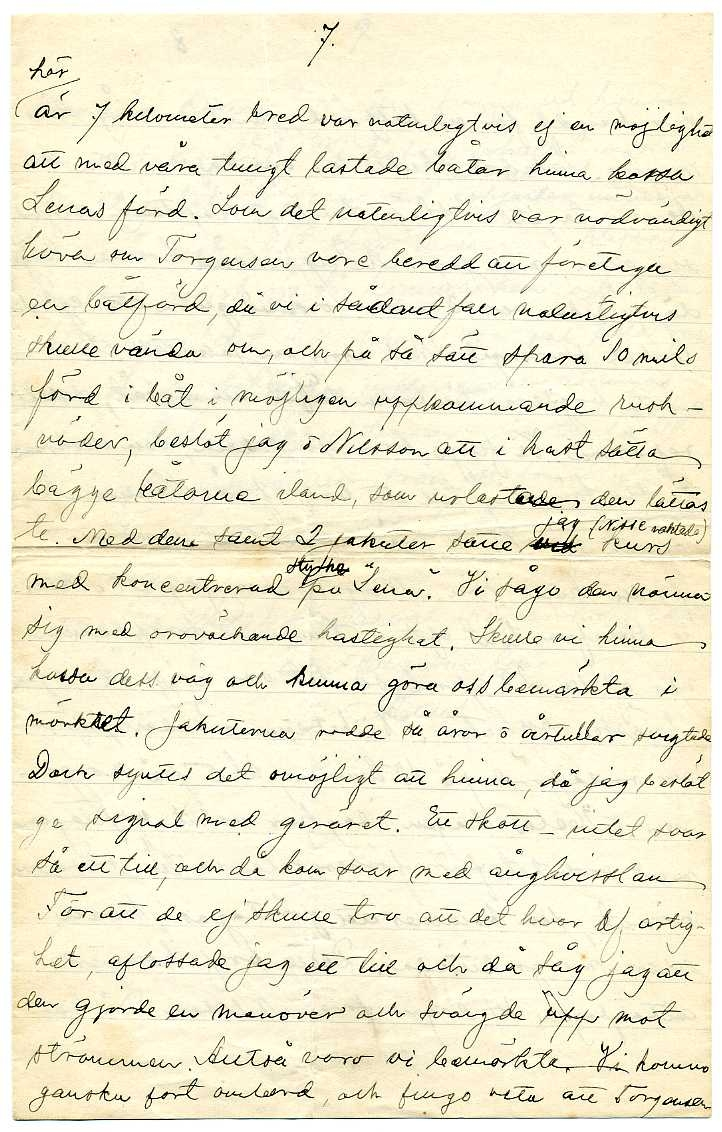 7.
här
är 7 kilometer bred var naturligtvis ej en möjlighet
att med våra tungt lastade båtar hinna korsa
Lenas färd. Som det naturligtvis var nödvändigt
höra om Torgensen vore beredd att företaga
en båtfärd, då vi i sådant fall naturligtvis
skulle vända om, och på så sätt spara 10 mils
färd i båt i möjligen uppkommande ruskväder,
beslöt jag o Nilsson att i hast sätta
bägge båtarne iland, som urlastade den lättas
te. Med den samt 2 jakuter satte jag (Nisse vaktade) kurs
med koncentrerad styrka på "Lena". Vi sågo den närma
sig med oroväckande hastighet. Skulle vi hinna
korsa dess väg och kunna göra oss bemärkta i
mörkret. Jakuterna rodde så åror o årtullar svigtade
Dock syntes det omöjligt att hinna, då jag beslöt
ge signal med geväret. Ett skott – intet svar
så ett till, och då kom svar med ånghvisslan
För att de ej skulle tro att det hvar af artig-
het, aflossade jag ett till och då såg jag att
den gjorde en manöver och svängde upp mot
strömmen. Alltså voro vi bemärkta. Vi kommo
ganska fort ombord, och fingo veta att Torgensen